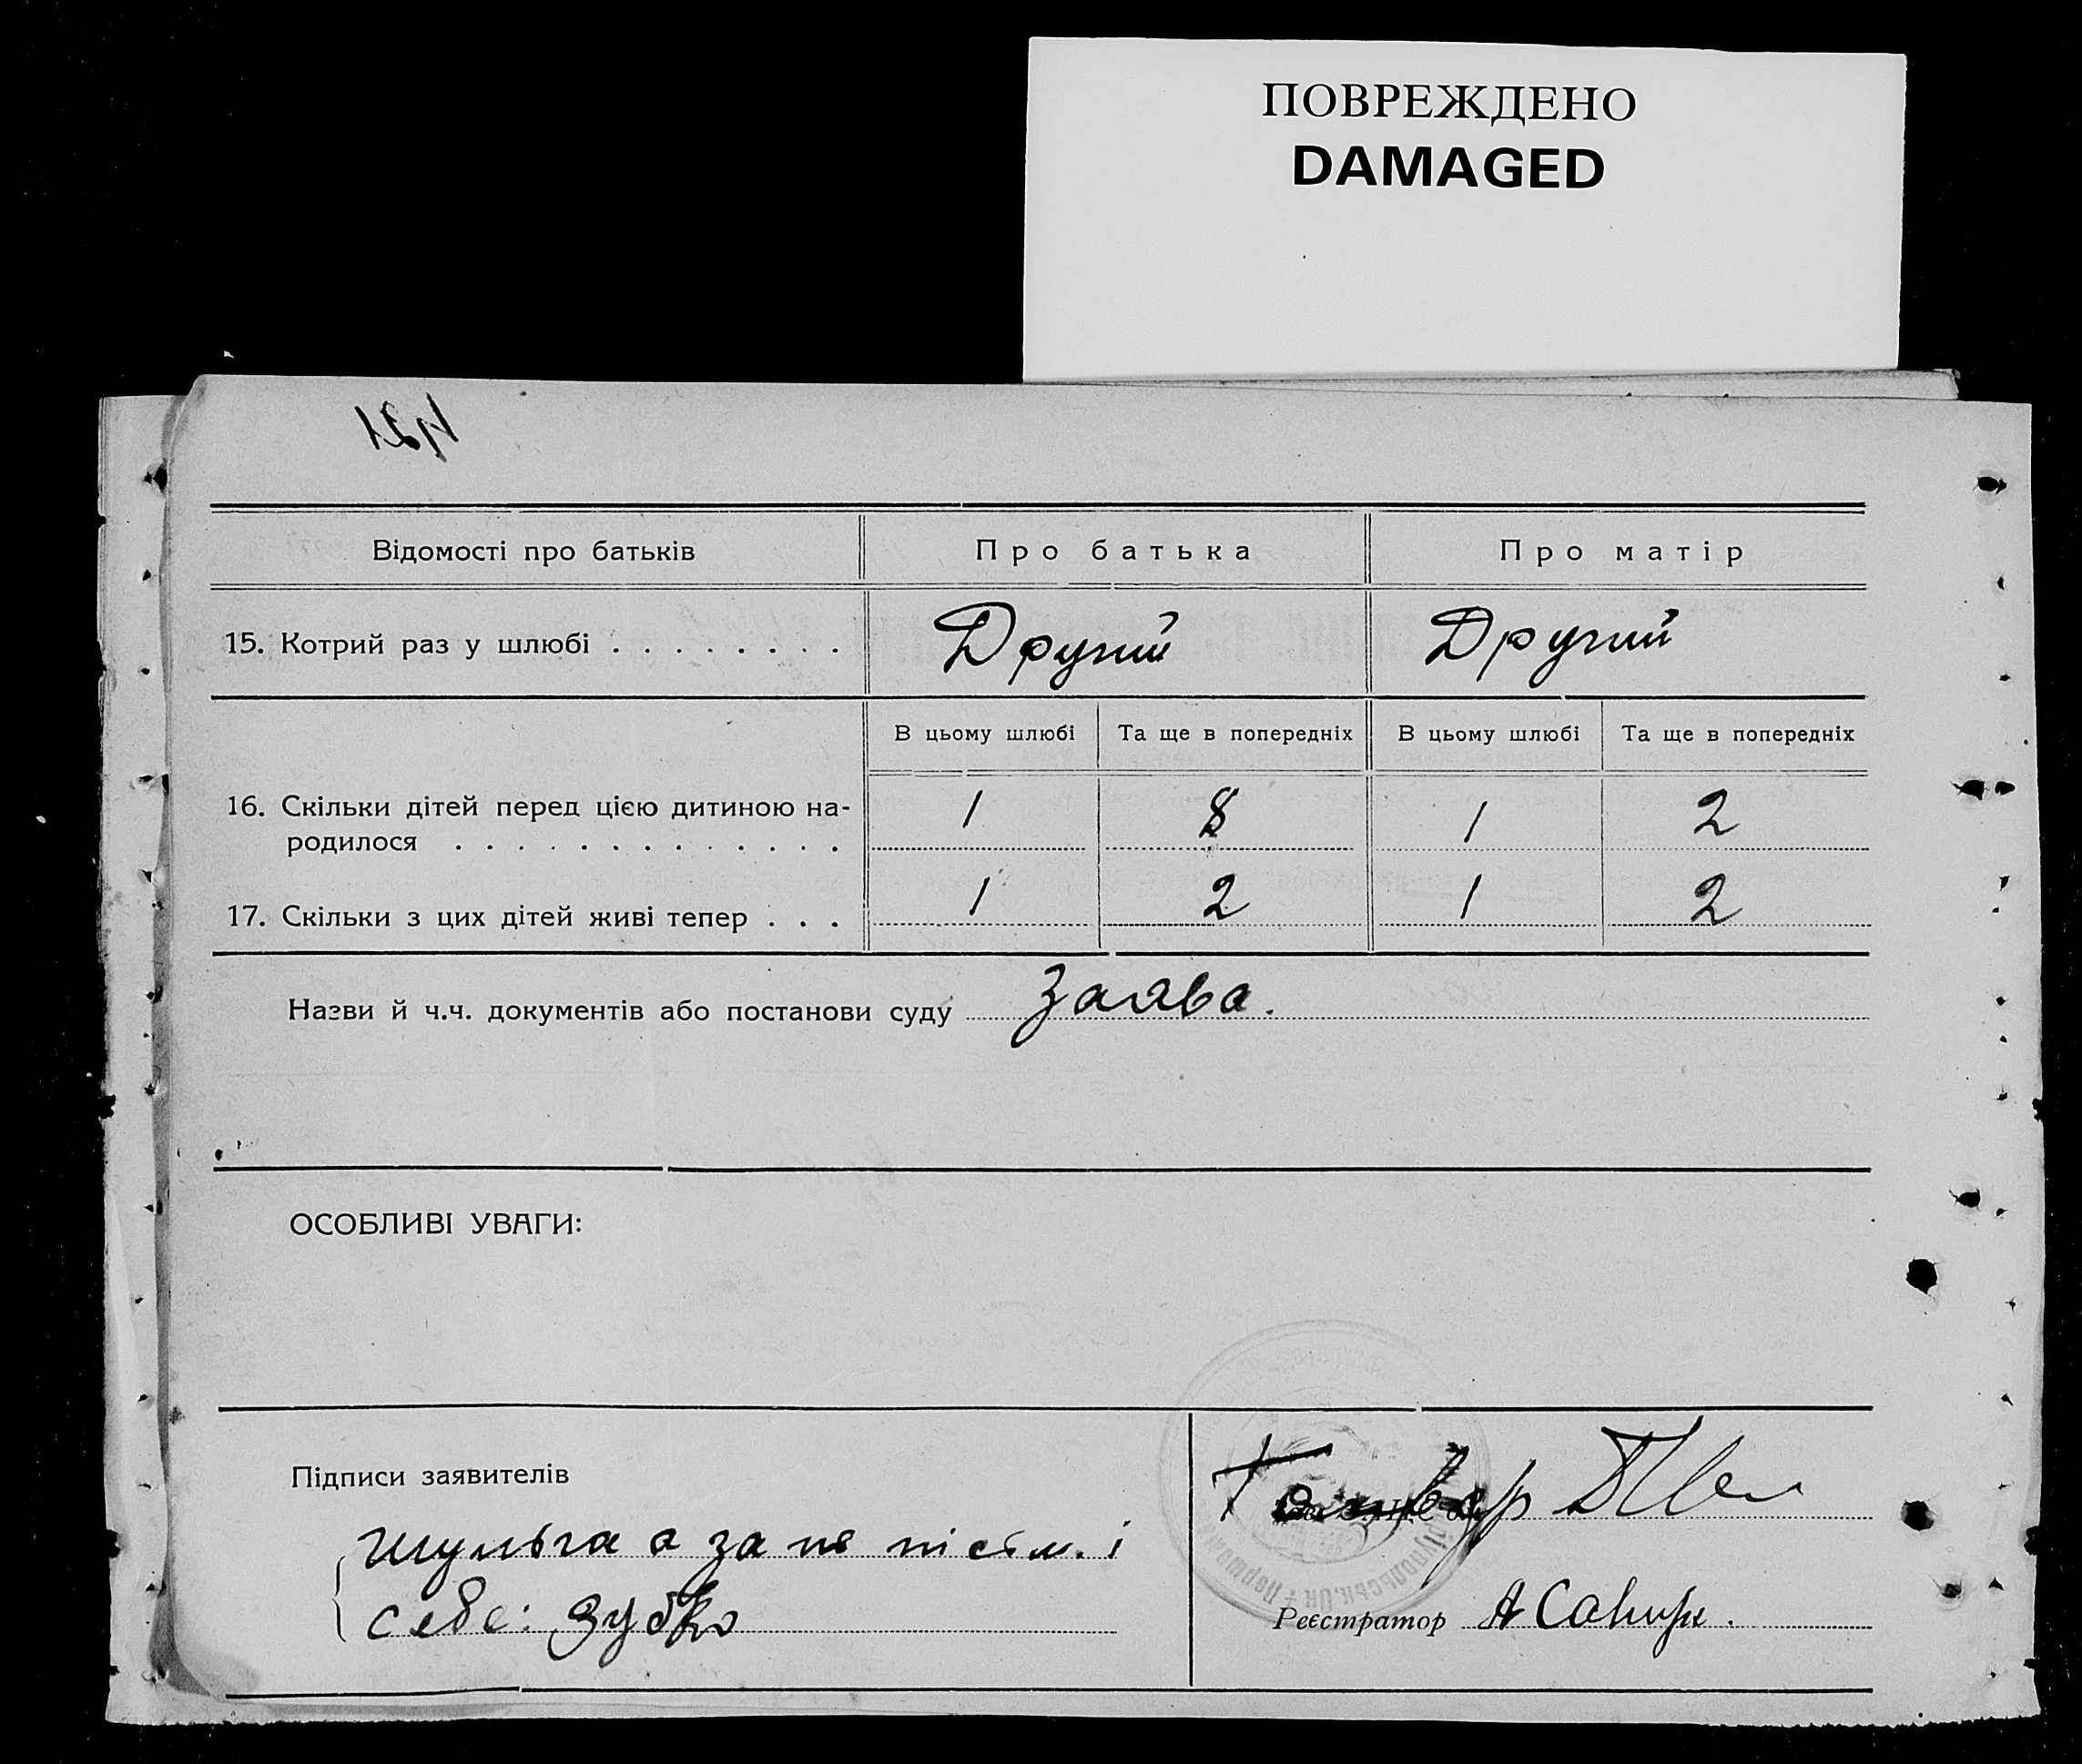 ПОВРЕЖДЕНО
DAMAGED
421
Відомості про батьків
Про батька
Про матір
15. Котрий раз у шлюбі . . . . . . . .
Другий
Другий
В цьому шлюбі
Та ще в попередніх
В цьому шлюбі
Та ще в попередніх
16. Скільки дітей перед цією дитиною на-
родилося . . . . . . . . . . . . .
1
8
1
2
17. Скільки з цих дітей живі тепер . . .
1
2
1
2
Назви й ч.ч. документів або постанови суду Заява.
ОСОБЛИВІ УВАГИ:
Підписи заявителів
Шульга а за
себе: Зубко
Реєстратор